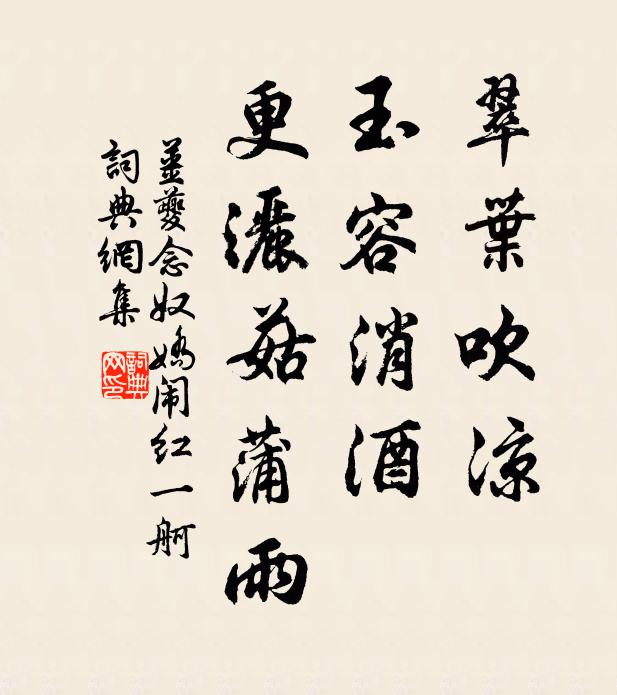 翠葉吹涼
玉容消酒
更灑菇蒲雨
姜夔念奴嬌闹红一舸
詞典網集
詞典网印